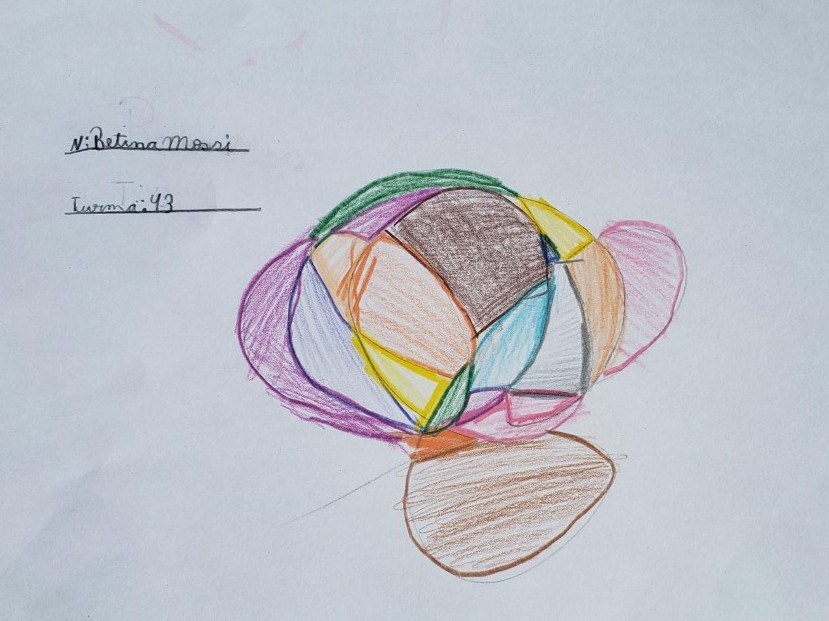 N: Betina Mossi
Turma: 43